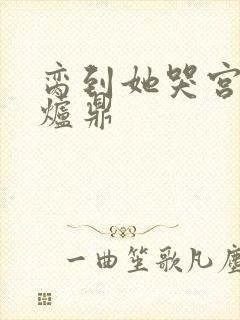 脔到她哭宫
爐鼎
一曲笙歌凡塵